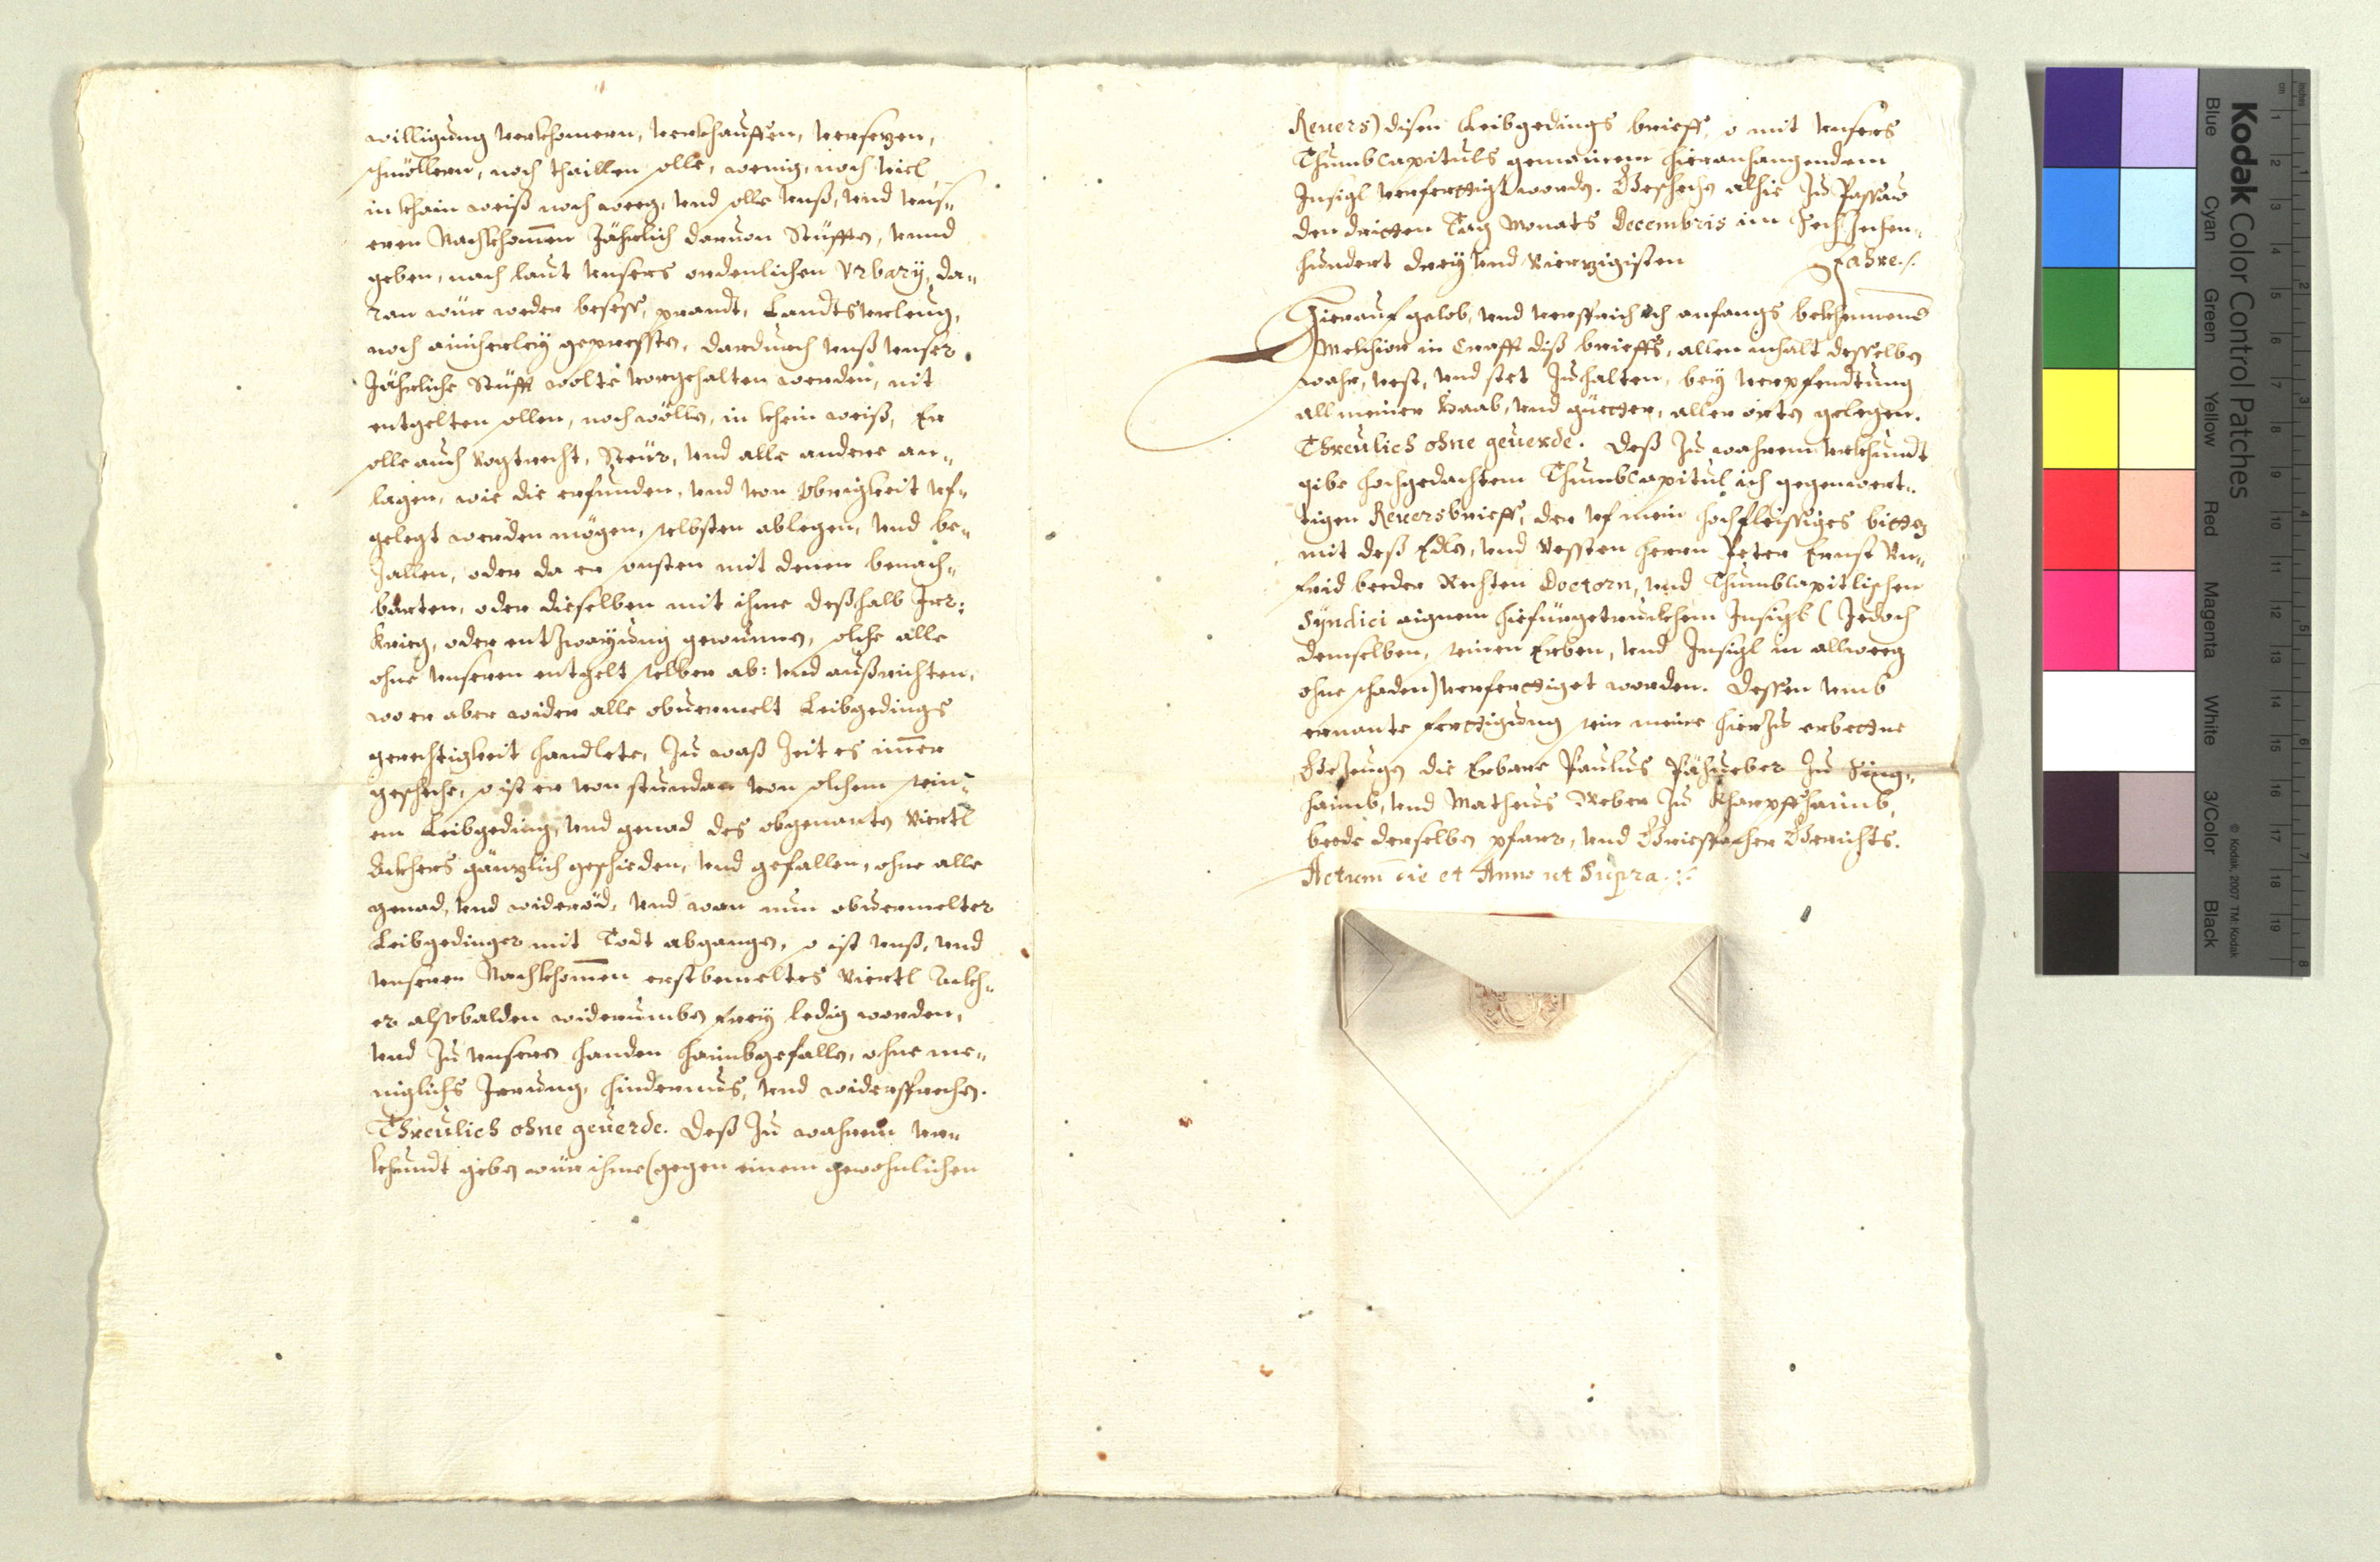 willigung verkhomern, verkhauffen, versezen,
schmöllern, noch thaillen solle, wenig, noch viel,
in khain weiß noch weeg, und solle unß, und uns„
eren Nachkhomen Jährlich daruon Stüfften, unnd
geben, nach laut unsers ordenlichen Urbarÿ, da„
ran wür weder beseß, prandt, Landtsverleüg,
noch ainicherleÿ gepresten, dardurch unß unser
Jährliche Stüfft wolte vorgehalten werden, nit
entgelten sollen, noch wöllen, in khein weiß, Er
solle auch Vogtrecht, Steür, und alle andere an„
lagen, wie die erfunden, und von Obrigkeit uf„
gelegt werden mögen, selbsten ablegen, und be„
zallen, oder da er sonsten mit denen benach„
barten, oder dieselben mit ihme deßhalb Irr:
krieg, oder entzwayung gewunnen, solche alle
ohne unseren entgelt selber ab: und außrichten,
wo er aber wider alle obuermelt Leibgedings
gerechtigkeit handlete, zu waß Zeit es imer
geschehe, so ist er von stundan von solchem sein„
em Leibgeding, und genad des obgenanten Viertl
Ackhers gänzlich geschieden, und gefallen, ohne alle
genad, und widerröd, und wan nun obuermelter
Leibgedinger mit Todt abgangen, so ist unß, und
unseren Nachkhomen erstbemeltes Viertl Ackh„
er alßbalden widerumben freÿ ledig worden,
und zu unseren handen haimbgefallen, ohne me„
niglichs Irrung, hindernus, und widersprechen.
Threulich ohne geuerde. Deß zu wahrem ur„
khundt geben wür ihme (gegen einem gewohnlichen
Reuers) disen Leibgedings brieff, so mit unsers
Thumbcapituls gemainem hieranhangendem
Insigl verferttigt worden. Geschehen alhie zu Passau
den dritten Tag Monats Decembris im Sechzehen„
hundert dreÿ und vierzigisten Jahre./.
Hierauf gelob, und versprich ich anfangs bekhennend
Melchior in Crafft diß brieffs, allen inhalt desselben
wahr, vest, und stet zuhalten, beÿ verpfendtung
all meiner Haab, und güetter, aller orten gelegen.
Threulich ohne geuerde. Deß zu wahrem urkhundt
gibe hochgedachtem Thumbcapitul ich gegenwert„
tigen Reuersbrieff, der uf mein hochfleissiges bitten
mit deß Edlen, und Vessten herrn Peter Ernst
beeder Rechten Doctorn, und Thumbcapitlischen
Sÿndici aignem hiefürgetruckhem Insigl (Jedoch
demselben, seinen Erben, und Insigl in allweeg
ohne schaden) verferttiget worden. Dessen umb
ernante ferttigung sein meine hierzu erbettne
Gezeugen die Erbare Paulus zu Sing„
haimb, und Matheus Weber zu Kharpffhaimb,
beede derselben pfarr, und Griespacher Gerichts.
Actum die et Anno ut Supra.